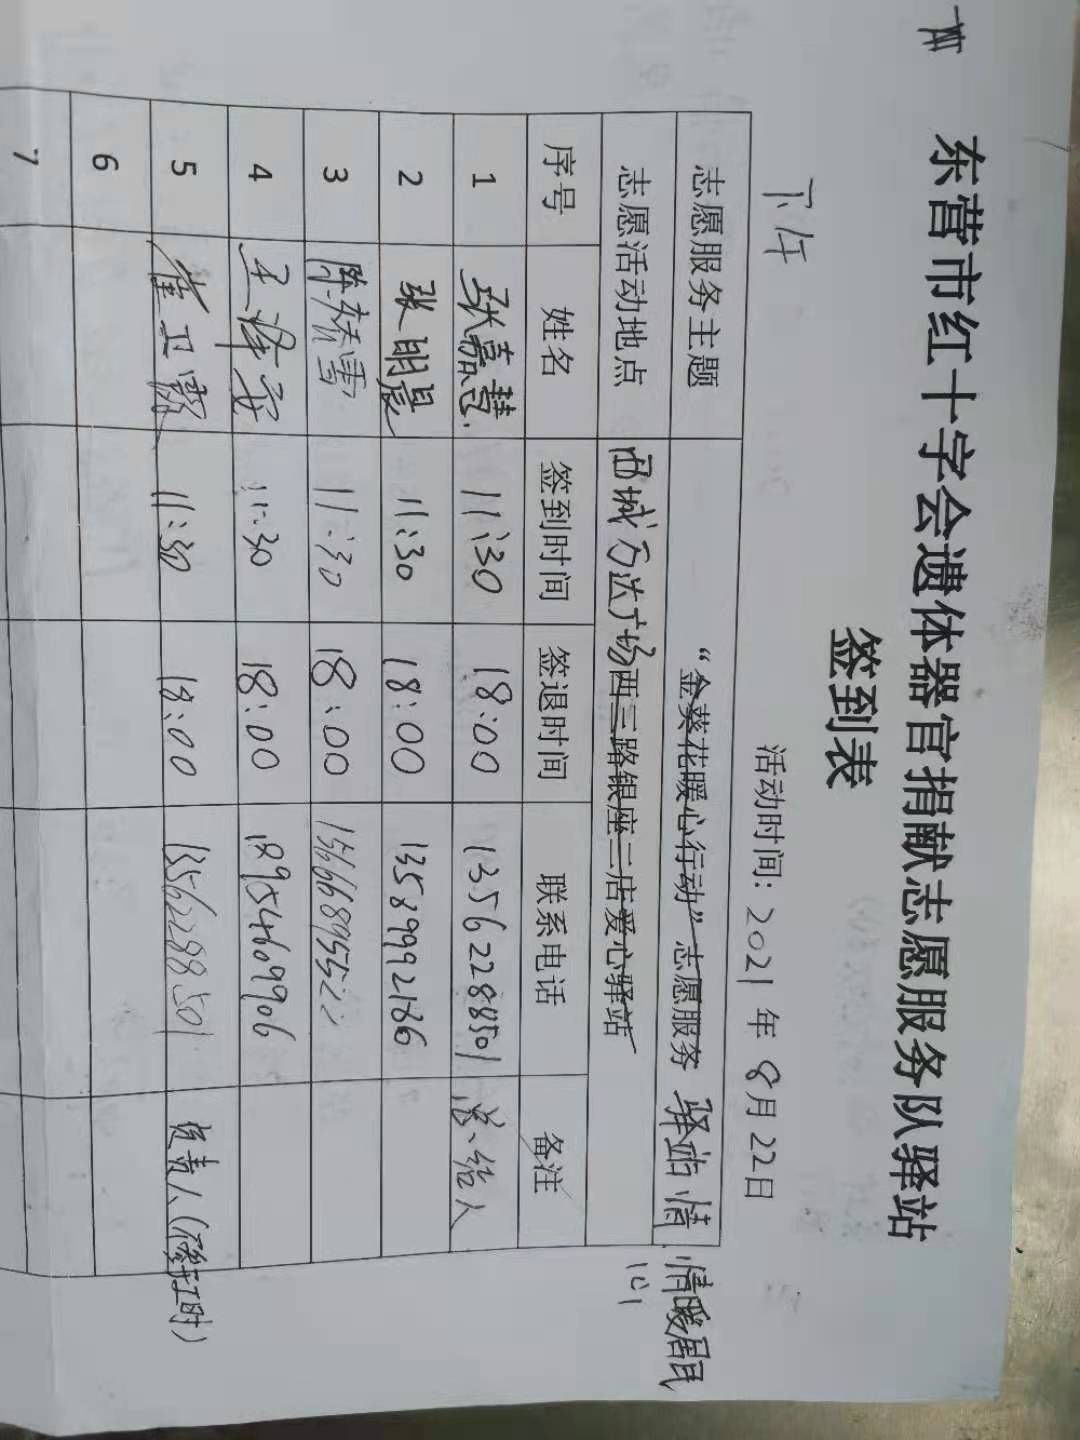 东营市红十字会遗体器官捐献志愿服务队驿站
签到表
下午 活动时间: 2021年8月22日
志愿服务主题 “金葵花暖心行动”志愿服务 驿站情 情暖居民心
志愿活动地点 西城万达广场西三路银座三店爱心驿站
序号 姓名 签到时间 签退时间 联系电话 备注
1 张嘉慧 11:30 18:00 13562288501 总结人
2 张明晨 11:30 18:00 13589992186
3 陈 雪 11:30 18:00 15666895522
4 王泽安 11:30 18:00 18954669906
5 崔卫霞 11:30 18:00 13562288501 负责人(
6
7